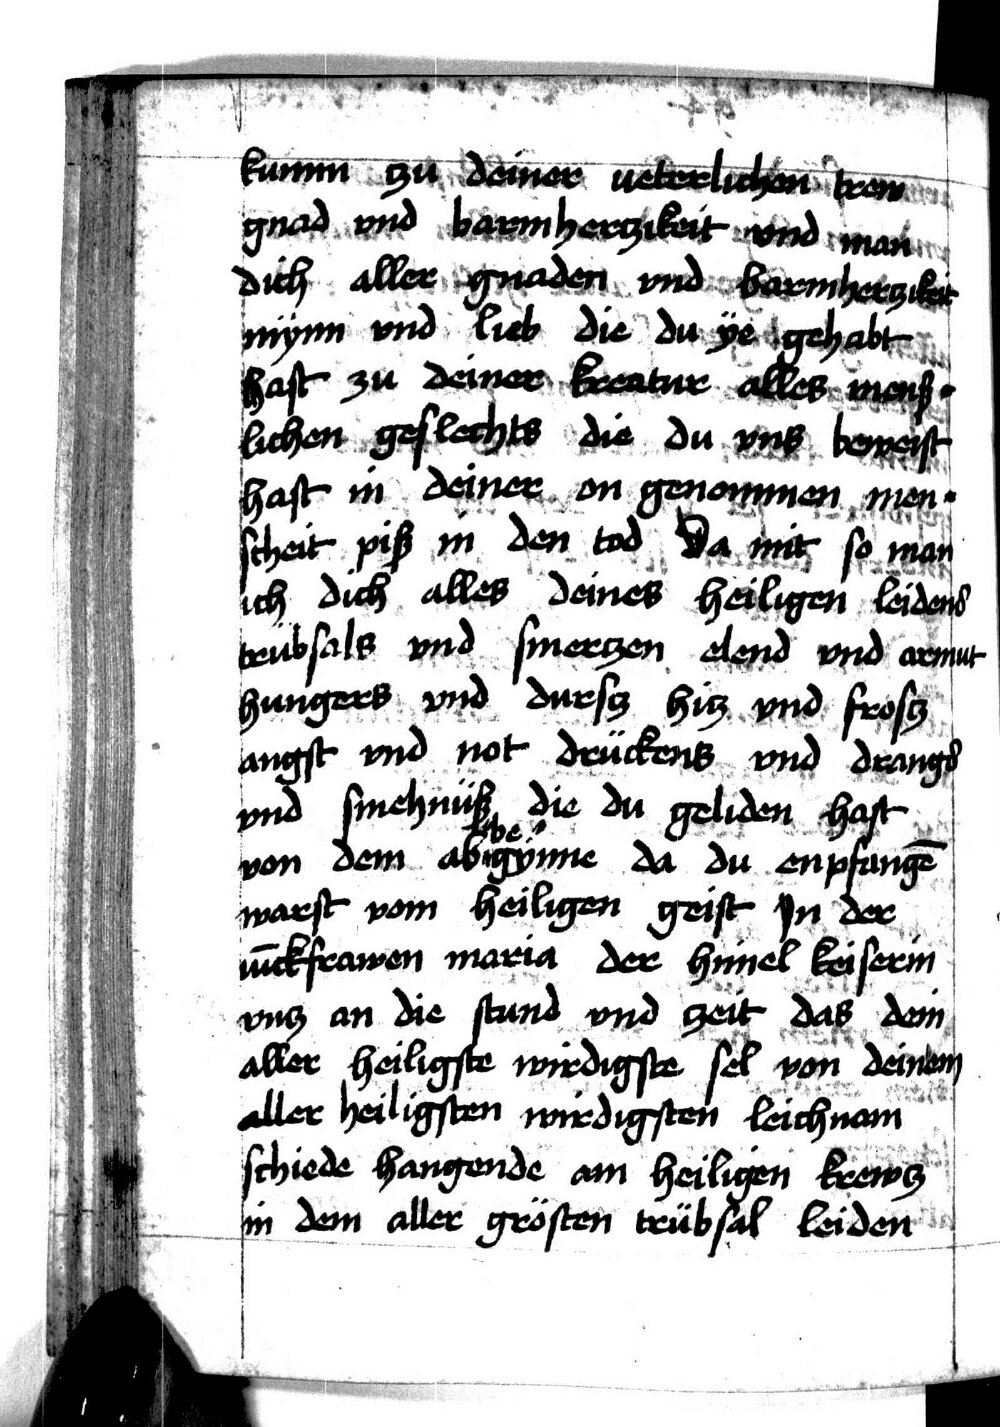 kumm tzu deiner veterlichen trew
gnad vnd barmhertzikeit vnd man
dich aller gnaden vnd barmhertzikeit
mÿnn vnd lieb die du ÿe gehabt
hast zu deiner kreatur alles mensch-
lichen geslechts die du vns beweist
hast in deiner on genommen men-
scheit piß in den tod Da mit so man
ich dich alles deines heiligen leidens
trübsals vnd smertzen elend vnd armut
hungers vnd durstz hitz vnd frostz
angst vnd not drückens vnd drangs
vnd smehnüß die du geliden hast
von dem abegÿnne da du enpfangē
warst vom heiligen geist In der
iūckfrawen maria der himel keiserin
vntz an die stund vnd tzeit das dein
aller heiligste wirdigste sel von deinem
aller heiligsten wirdigsten leichnam
schiede hangende am heiligen krewtz
in dem aller grösten trübsal leiden